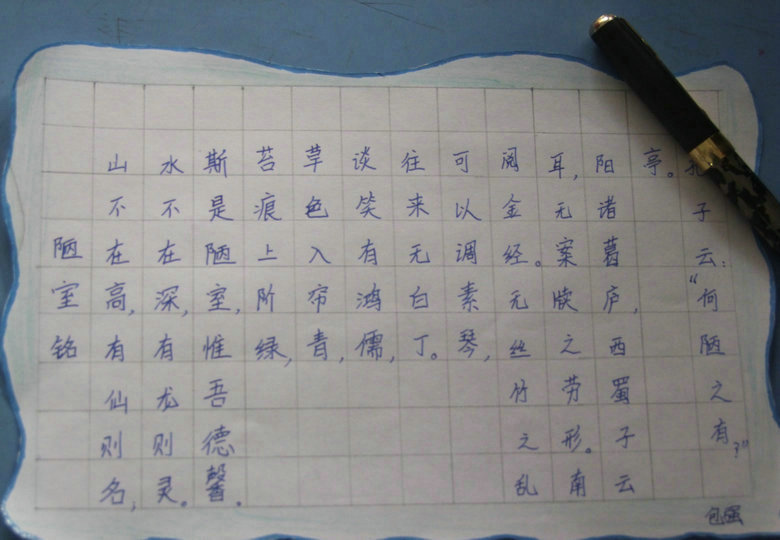 陋室铭
山不在高,有仙则名,
水不在深,有龙则灵。
斯是陋室,惟吾德馨。
苔痕上阶绿,
草色入帘青,
谈笑有鸿儒,
往来无白丁。
可以调素琴,
阅金经。无丝竹之乱
耳,无案牍之劳形。南
阳诸葛庐,西蜀子云
亭。
孔子云:“何陋之有?”
包强